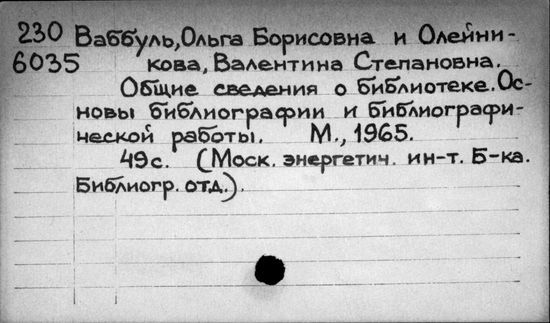 230 Ваббуль, Ольга Борисовна и Олейни-
6035 кова, Валентина Степановна.
Общие сведения о библиотеке. Ос-
новы библиографии и библиографи-
ческой работы. М., 1965.
49с. (Моск. энергетич. ин-т. Б-ка.
Библиогр. отд.).